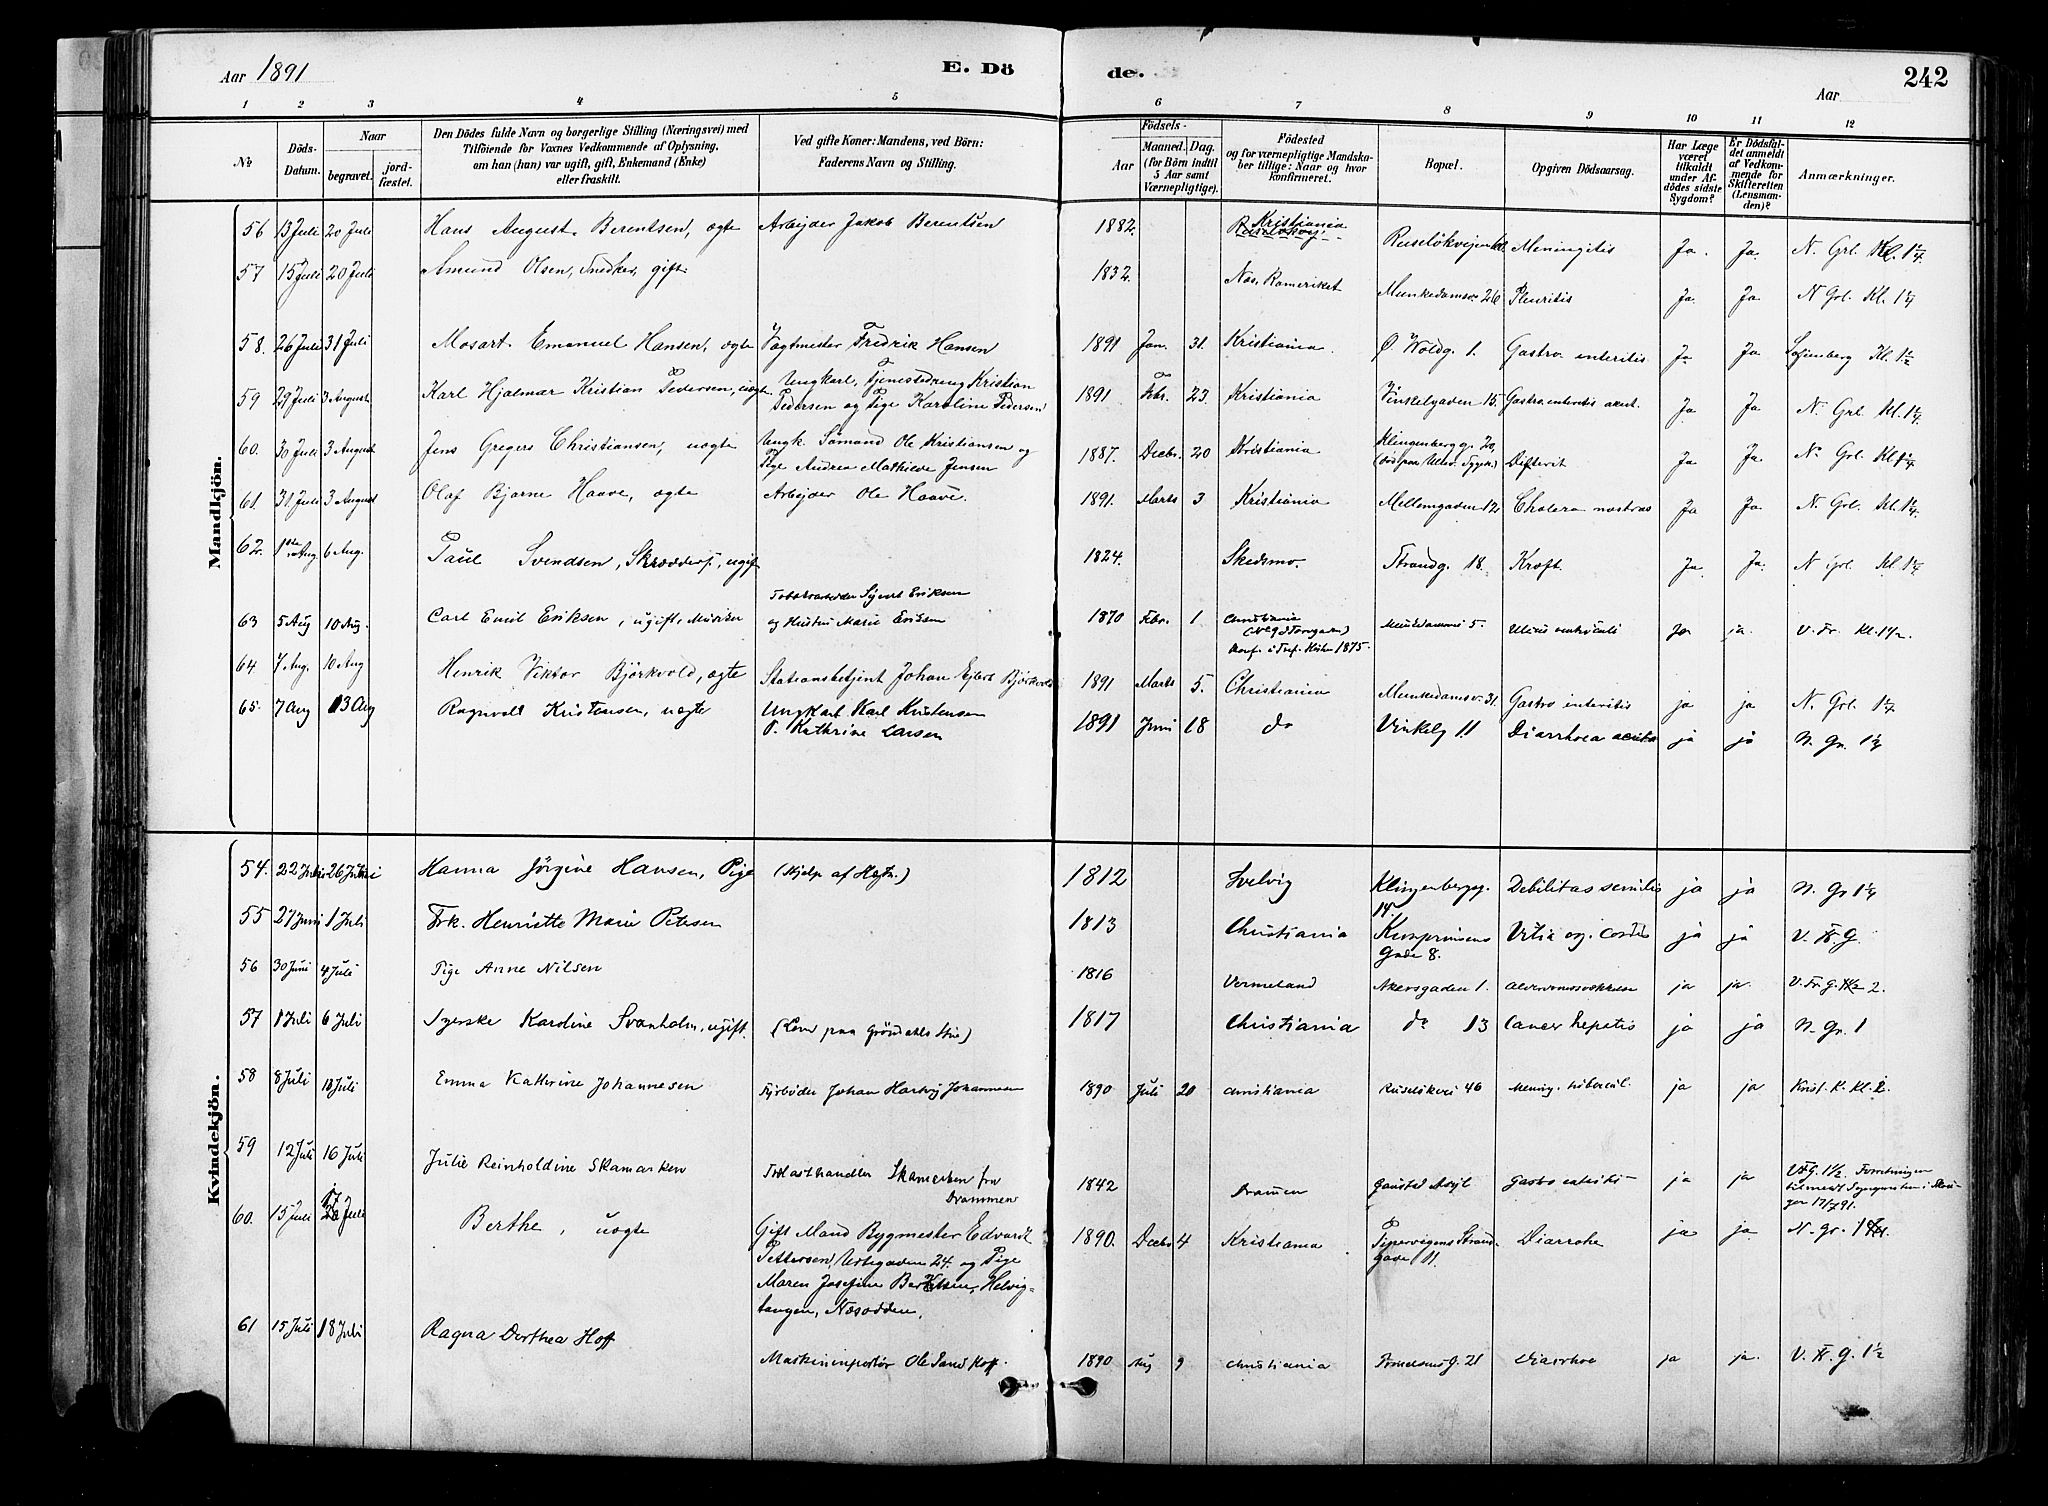 Aar 1891
E. Döde.
Aar
242
1 2 3 4 5 6 7 8 9 10 11 12
No
Döds-Datum.
Naar
begravet.
jordfæstet.
Den Dödes fulde Navn og borgerlige Stilling (Næringsvei) med
Tilföiende for Voxnes Vedkommende af Oplysning,
om han (hun) var ugift, gift, Enkemand (Enke)
eller fraskilt.
Ved gifte Koner: Mandens, ved Börn:
Faderens Navn og Stilling.
Födsels-
Aar
Maaned. Dag.
(for Börn indtil
5 Aar samt
Værnepligtige).
Födested
og for værnepligtige Mandska-
ber tillige: Naar og hvor
konfirmeret.
Bopæl.
Opgiven Dödsaarsag.
Har Læge
været
tilkaldt
under Af-
dödes sidste
Sygdom?
Er Dödsfal-
det anmeldt
af Vedkom-
mende for
Skifteretten
(Lensman-
den)?
Anmærkninger.
Mandkjön.
56 13 Juli 20 Juli Hans August Berentsen, ægte Arbejder Jakob Berentsen 1882. Kristiania Meningitis Ja. Ja. N. Grl. Kl. 1¼
57 15 Juli 20 Juli Amund Olsen, Snedker, gift 1832. Nes, Romeriket Munkedamsv. 26 Pleuritis Ja Ja N Grl. Kl. 1¼
58. 26 Juli 31 Juli Mosart Emanuel Hansen, ægte Vagtmester Fredrik Hansen 1891 Jan. 31. Kristiania. Ø Voldg. 1. Gastro enteritis Ja Ja Sofienberg Kl. 1½
59 29 Juli 3 August Karl Hjalmar Kristian Pedersen, uægte Ungkarl, Tjenestedreng Kristian
Pedersen og Pige Karoline Pedersen 1891 Febr. 23. Kristiania Vinkelgaden 15. Gastro enteritis acut. Ja Ja N. Grl. Kl. 1¼
60. 30 Juli 3 August Jens Gregers Christiansen, uægte Ungk. Sömand Ole Kristiansen og
Pige Andrea Mathilde Jensen 1887. Decbr. 20 Kristiania Klingenbergg. 20, Difterit Ja Ja. N. Grl. Kl 1¼
61. 31 Juli 3 August Olaf Bjarne Haave, ægte Arbejder Ole Haave. 1891. Marts 3 Kristiania Mellemgaden 12 Cholera nostras Ja Ja. N. Grl. Kl. 1¼
62. 1 Aug. 6 Aug. Paul Svendsen, ugift 1824. Skedsmo. Strandg. 18. Kræft. Ja. Ja. N Grl. Kl 1¼
63 5 Aug 10 Aug. Carl Emil Eriksen, ugift, Musiker Sigvart Eriksen
og Hustru Marie Eriksen 1870 Febr. 1 Christiania
1875. 5. Ulcus ventriculi ja ja. V. Fr. Kl. 1½.
64. 7 Aug. 10 Aug Henrik Viktor Björkvold, ægte Stationsbetjent Johan Ejlert Björkvold 1891 Marts 5. Christiania Munkedamsv. 31. Gastro enteritis ja ja N. Grl. 1¼
65. 7 Aug 13 Aug Ragnvald Kristensen, uægte Ungkarl Karl Kristensen
P. Kathrine Larsen 1891 Juni 18 do Vinkelg 11 Diarrhoea acuta ja ja N. Gr. 1¼
Kvindekjön.
54. Hanna Jörgine Hansen, Pige (Hjelp af 1812 Svelvig Klingenbergg.
14. Debilitas senilis ja ja N. Gr 1¼
55 27 Juni 1 Juli Frk. Henriette Marie Petersen 1813 Christiania Kronprinsens
Gade 8. ja ja V. Fr. G.
56 30 Juni 4 Juli Pige Anne Nilsen 1816 Vermeland Akersgaden 1. ja ja. V. Fr. G. 2.
57 1 Juli 6 Juli Syerske Karoline Svanholm, ugift. 1817 Christiania do 13 Cancer hepatis ja ja N. Gr. 1
58 8 Juli Emma Kathrine Johannesen Fyrböder Johan Hartvig Johannesen 1890 Juli 20 Christiania 46 Mening. tubercul. ja ja Krist. K. Kl. 2.
59 12 Juli 16 Juli Julie Reinholdine Skamarken Trælasthandler Skamarken fra
Drammen 1842 Drammen Gaustad Asyl Gastro enteritis ja ja V. F. G. 1½.
60. 15 Juli Juli Berthe, uægte Gift Mand Bygmester Edvardt
Pettersen, Urtegaden 24. og Pige
Maren Josefine Helvig-
tangen, Næsodden. 1890. Decbr 4 Kristiania Pipervigens Strand-
gade 11. Diarrohe ja ja N. Gr. 1
61 15 Juli 18 Juli Ragna Dorthea Hoff
Ole Sand Hoff. 1890 Aug 9 Christiania 21 Diarrhoe ja ja. V. Fr. G. 1½